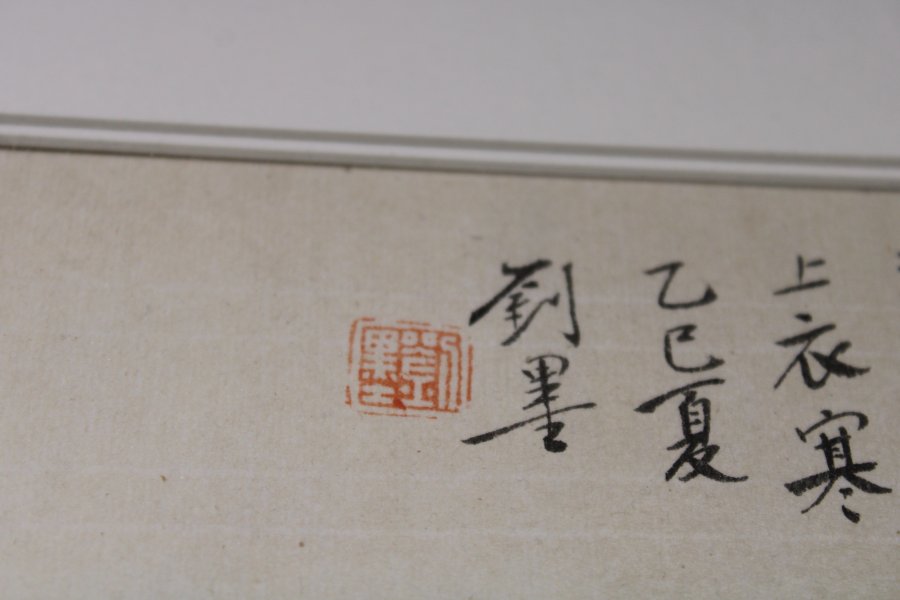 上衣寒
乙巳夏
劉墨
劉墨